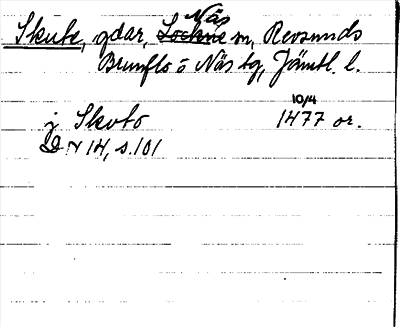 Näs
Skute, gdar, Lockne sn, Revsunds
Brunflo o Näs tg, Jämtl. l.
10/4
j Skoto 1477 or.
DN 14, s. 101